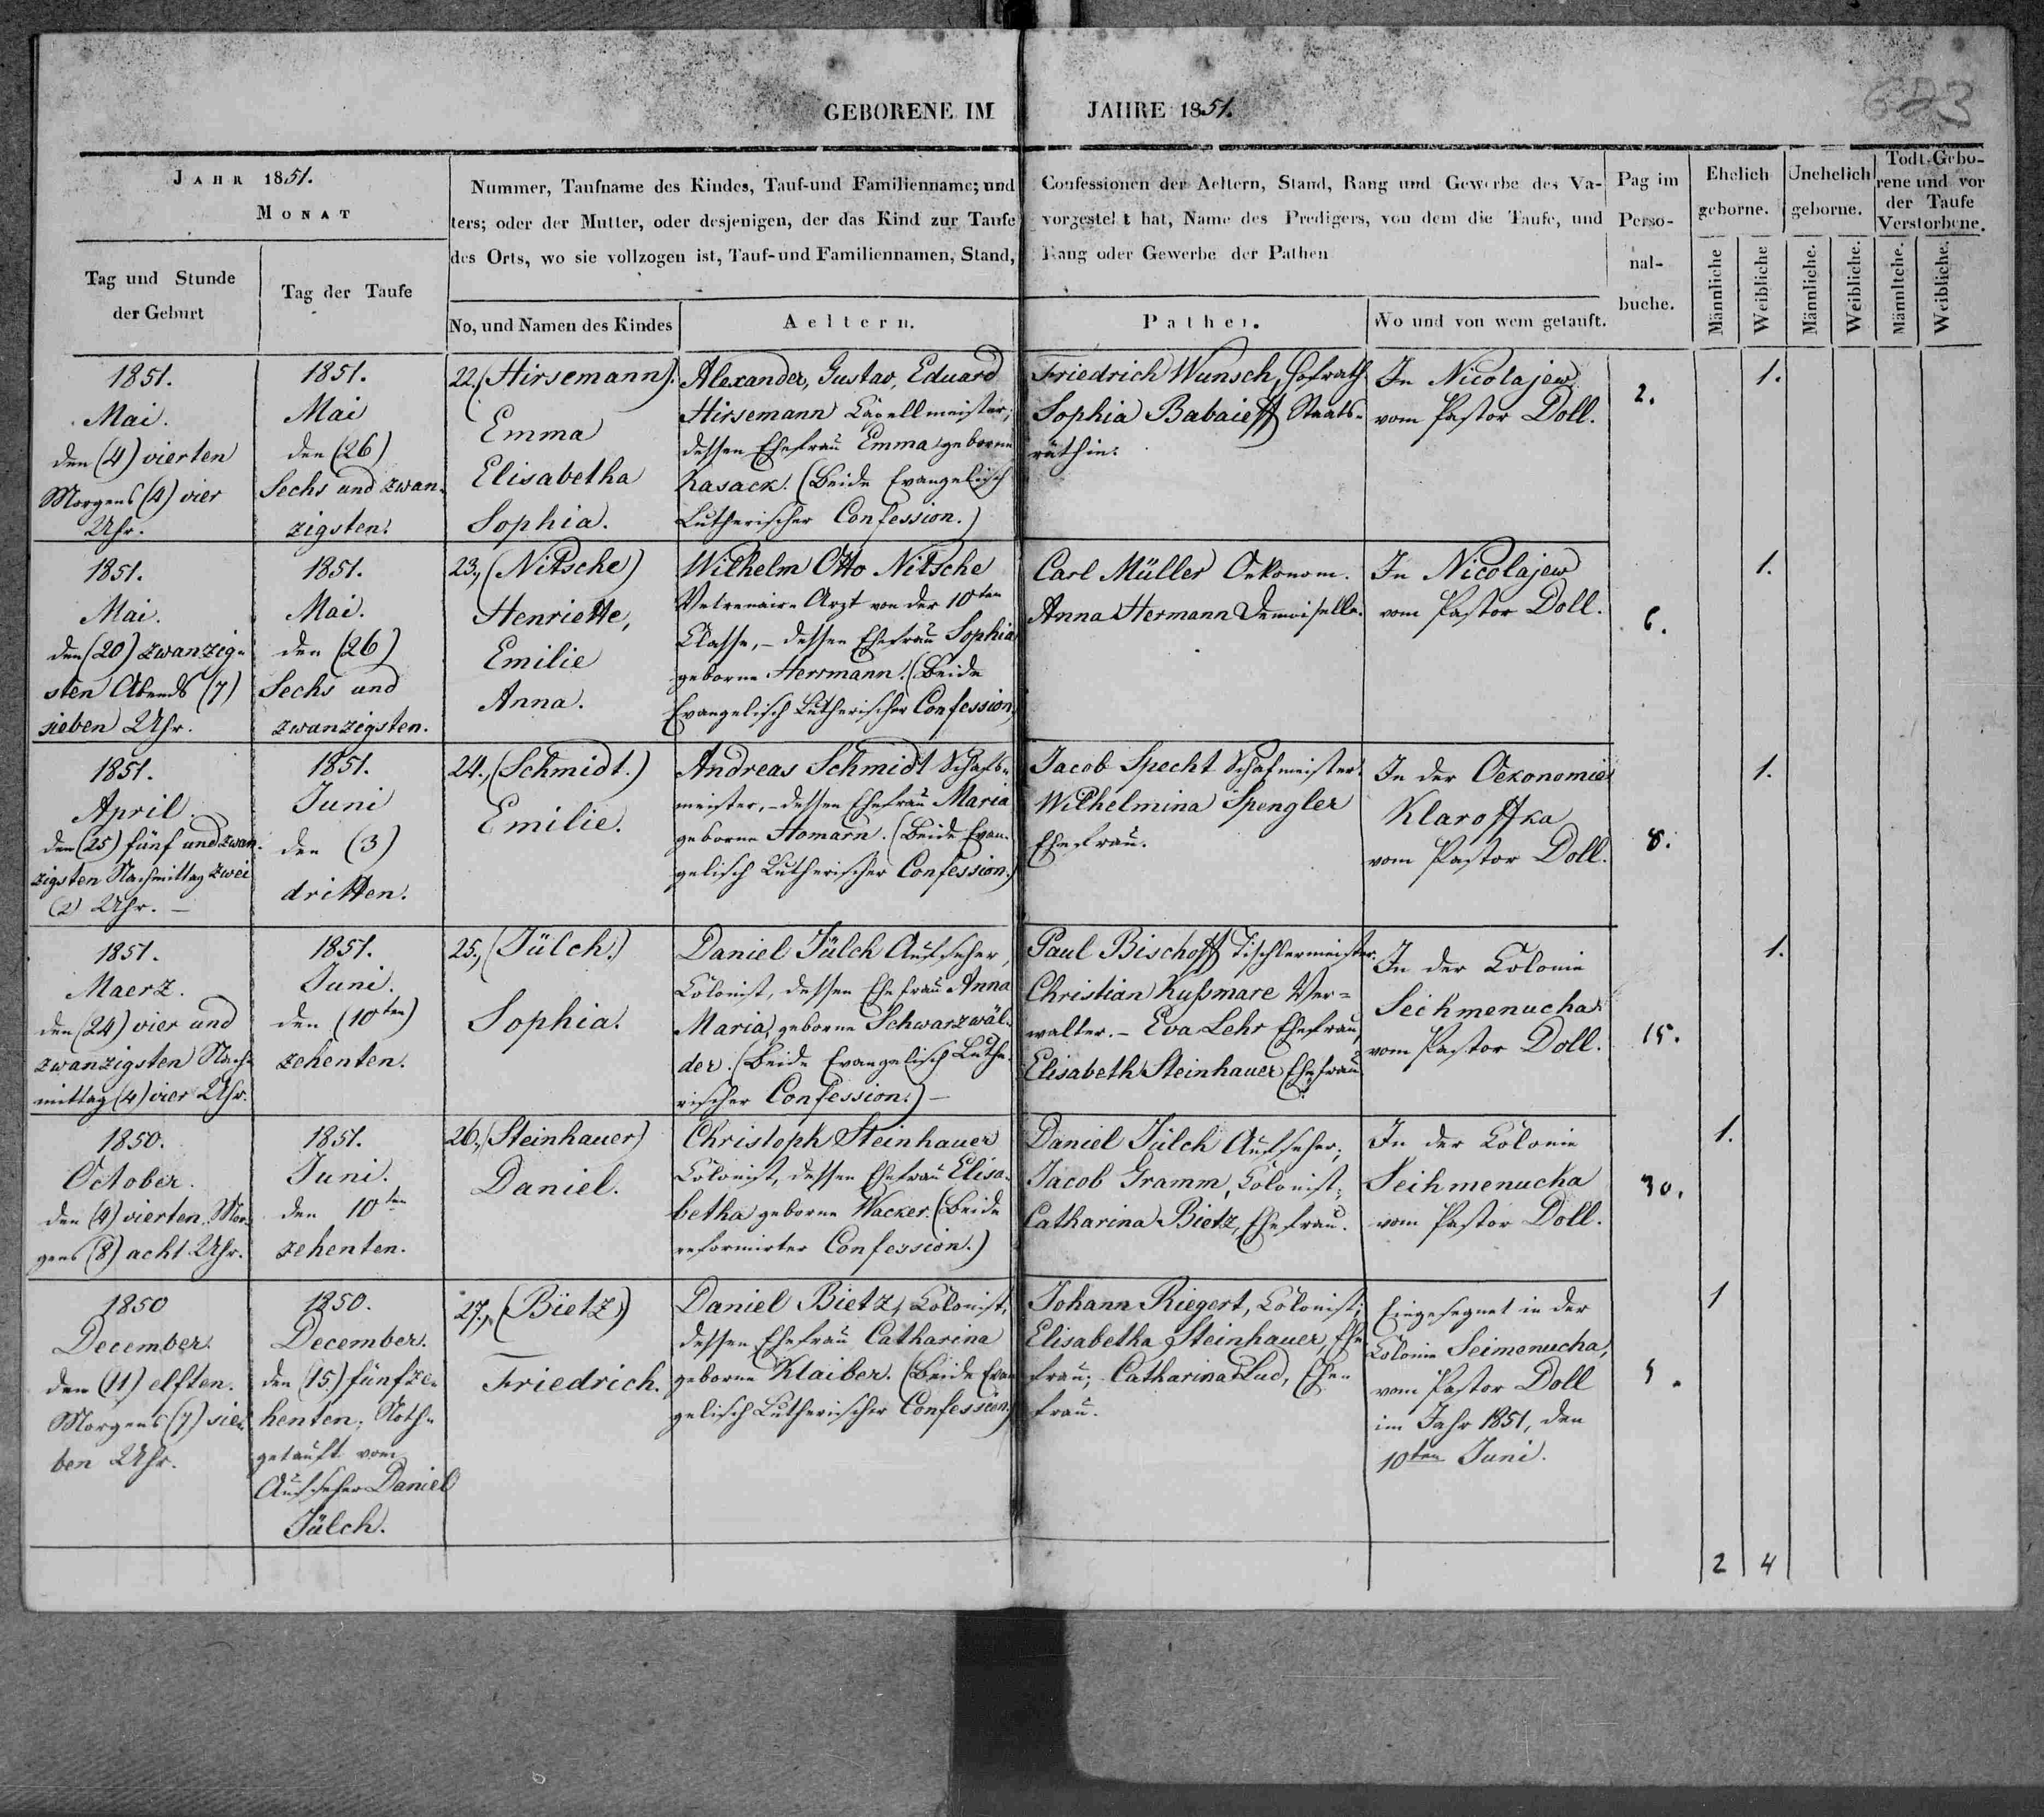 623
GEBORENE IM JAHRE 1851.
JAHR 1851.
MONAT
Tag und Stunde
der Geburt
Tag der Taufe
Nummer, Taufname des Kindes, Tauf-und Familienname; und Confessionen der Aeltern, Stand, Rang und Gewerbe des Va-
ters; oder der Mutter, oder desjenigen, der das Kind zur Taufe vorgestellt hat, Name des Predigers, von dem die Taufe, und
des Orts, wo sie vollzogen ist, Tauf-und Familiennamen, Stand, Rang oder Gewerbe der Pathen
No, und Namen des Kindes
Aeltern.
Pathen.
Wo und von wem getauft.
Pag im
Perso-
nal-
buche.
Ehelich
geborne.
Unehelich
geborne.
Todt-Gebo-
rene und vor
der Taufe
Verstorbene.
Männliche
Weibliche
Männliche.
Weibliche.
Männltche.
Weibliche.
1851.
Mai.
den (4) vierten
Morgens (4) vier
Uhr.
1851.
Mai
den (26)
Sechs und zwan-
zigsten.
22. (Hirsemann).
Emma
Elisabetha
Sophia.
Alexander, Gustav, Eduard
Hirsemann Capellmeister;
dessen Ehefrau Emma geborne
Kasack. (Beide Evangelisch
Lutherischer Confession.)
Friedrich Wunsch, Hofrath
Sophia Babaieff Staats-
räthin.
In Nicolajew
vom Pastor Doll.
2.
1.
1851.
Mai.
den (20) zwanzig-
sten Abends (7)
sieben Uhr.
1851.
Mai.
den (26)
Sechs und
zwanzigsten.
23., (Nitsche)
Henriette,
Emilie
Anna.
Wilhelm Otto Nitsche
Vetrenair-Arzt von der 10ten
Classe, - dessen Ehefrau Sophia
geborne Herrmann. (Beide
Evangelisch Lutherischer Confession)
Carl Müller Oekonom.
Anna Hermann Demoiselle.
In Nicolajew
vom Pastor Doll.
6.
1.
1851.
April.
den (25) fünf und zwan-
zigsten Nachmittag zwei
(2) Uhr. -
1851.
Juni
den (3)
dritten.
24., (Schmidt.)
Emilie.
Andreas Schmidt Schaf-
meister, - dessen Ehefrau Maria
geborne Homarn. (Beide Evan-
gelisch Lutherischer Confession.)
Jacob Specht Schafmeister.
Wilhelmina Spengler
Ehefrau.
In der Oekonomie
Klaroffka
vom Pastor Doll.
8.
1.
1851.
Maerz.
den (24) vier und
zwanzigsten Nach-
mittag (4) vier Uhr.
1851.
Juni.
den (10ten)
zehenten.
25., (Jülch.)
Sophia.
Daniel Jülch Aufseher,
Colonist, dessen Ehefrau Anna
Maria, geborne Schwarzwäl-
der. (Beide Evangelisch Luthe-
rischer Confession.) -
Paul Bischoff Tischlermeister.
Christian Kußmare Ver-
walter. - Eva Lehr Ehefrau,
Elisabeth Steinhauer Ehefrau
In der Colonie
Seihmenucha
vom Pastor Doll.
15.
1.
1850.
October.
den (4) vierten Mor-
gens (8) acht Uhr.
1851.
Juni.
den 10ten
zehenten.
26., (Steinhauer)
Daniel.
Christoph Steinhauer
Colonist, dessen Ehefrau Elisa-
betha geborne Wacker. (Beide
reformirter Confession.)
Daniel Jülch Aufseher;
Jacob Gramm, Colonist;
Catharina Bietz, Ehefrau.
In der Colonie
Seihmenucha
vom Pastor Doll.
30.
1.
1850
December.
den (11) elften.
Morgens (7) sie-
ben Uhr.
1850.
December.
den (15.) fünfze-
henten, Noth-
getauft vom
Aufseher Daniel
Jülch.
27., (Bietz)
Friedrich.
Daniel Bietz, Colonist,
dessen Ehefrau Catharina
geborne Klaiber. (Beide Evan-
gelisch Lutherischer Confession.)
Johann Riegert, Colonist;
Elisabetha Steinhauer, Ehe-
frau; Catharina Lud, Ehe-
frau.
Eingesegnet in der
Colonie Seimenucha,
vom Pastor Doll
im Jahr 1851, den
10ten Juni.
1
2 4